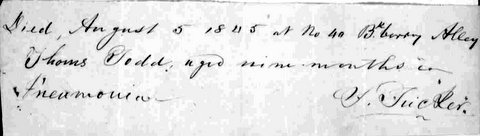 Died, August 5 1845 at No 40 Bkberry Alley
Thoms Todd, aged nine months
Pneumonia
Tucker.